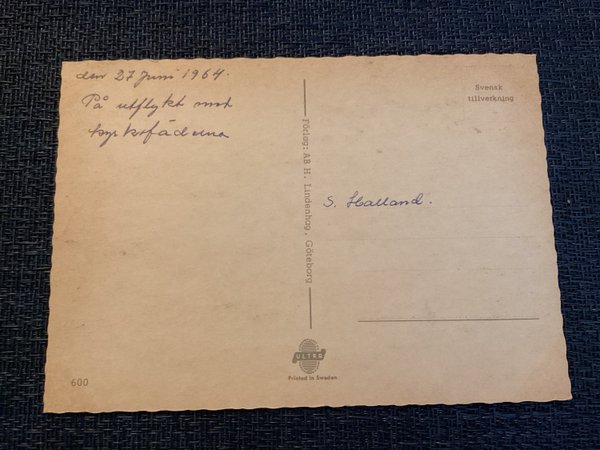 den 27 Juni 1964.
På utflykt mot
kyrkofäderna
Förlag: AB H. Lindenhag, Göteborg
Svensk
tillverkning
S. Halland.
ULTRA
Printed in Sweden
600